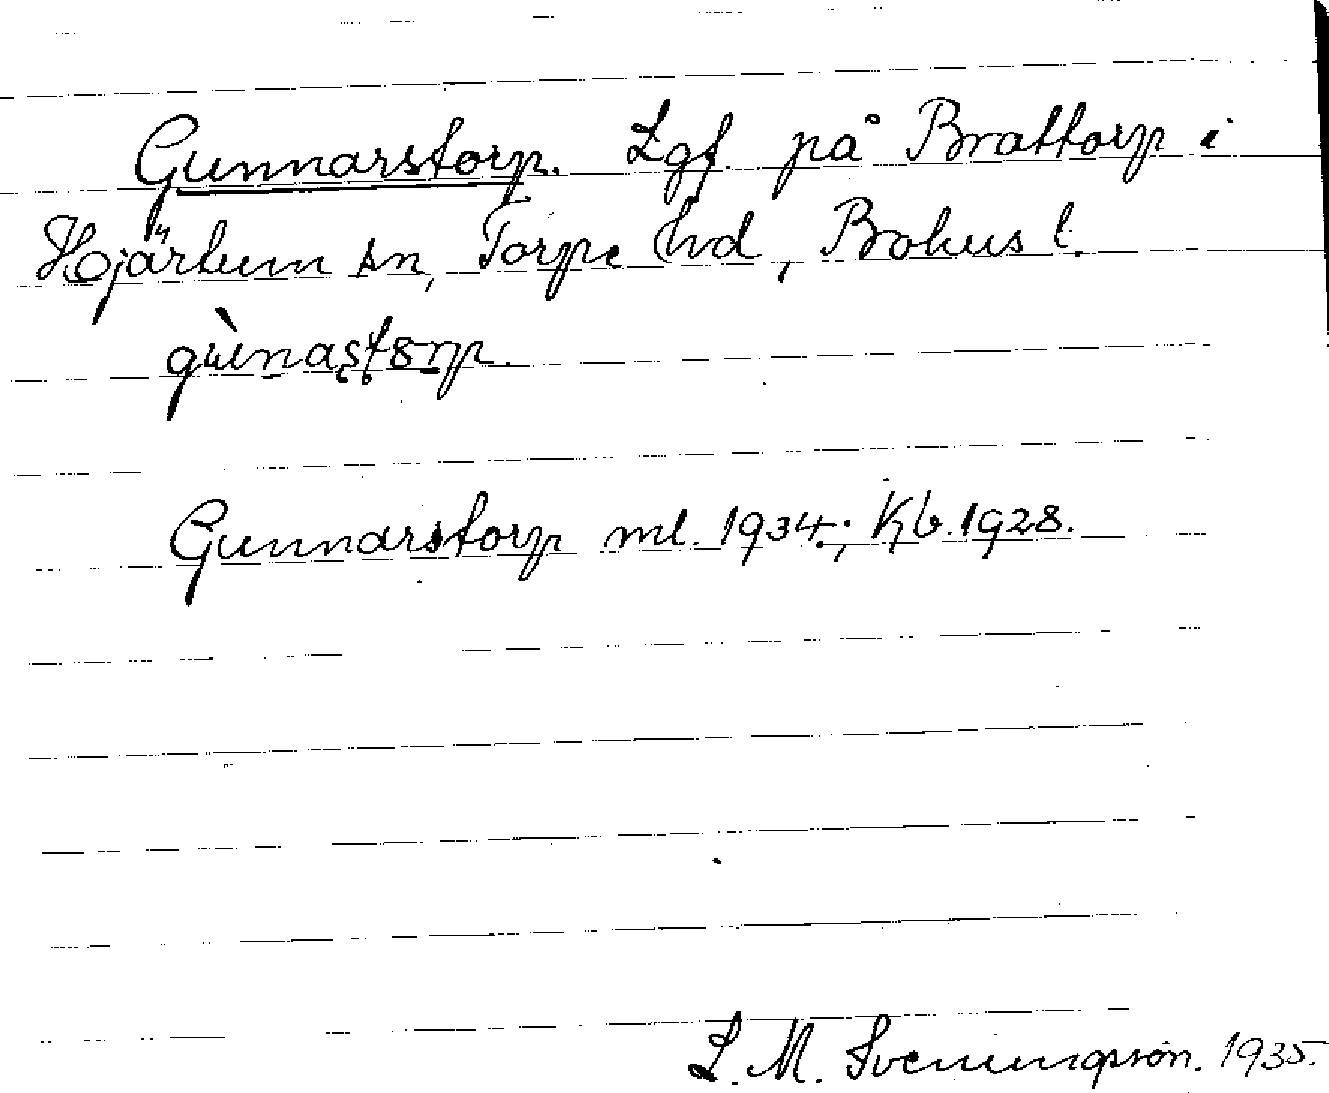 Gunnarstorp. Lgf. på Brattorp i
Hjärtum sn, Torpe hd, Bohus l.
gùnaştorp.
Gunnarstorp ml. 1934.; Kb. 1928.
L. M. Svenungsson. 1935.